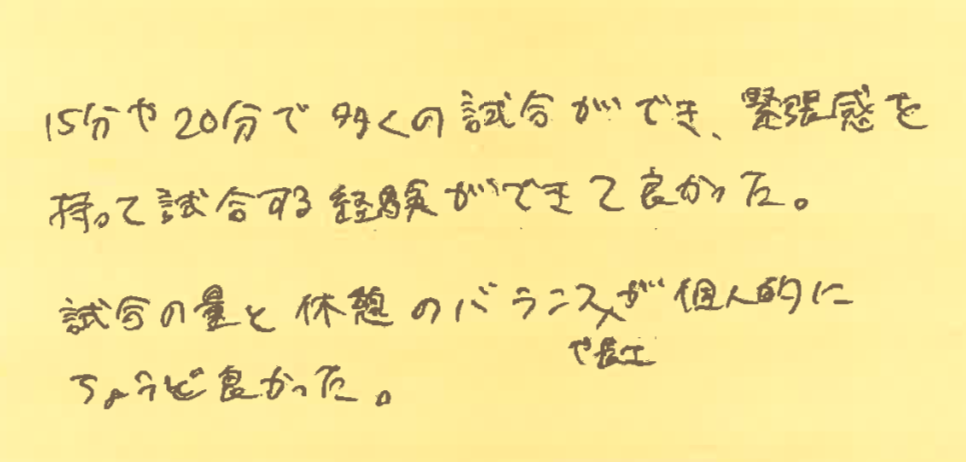 15分や20分で多くの試合ができ、緊張感を
持って試合する経験ができて良かった。
試合の量と休憩のバランスが個人的に
や長さ
ちょうど良かった。